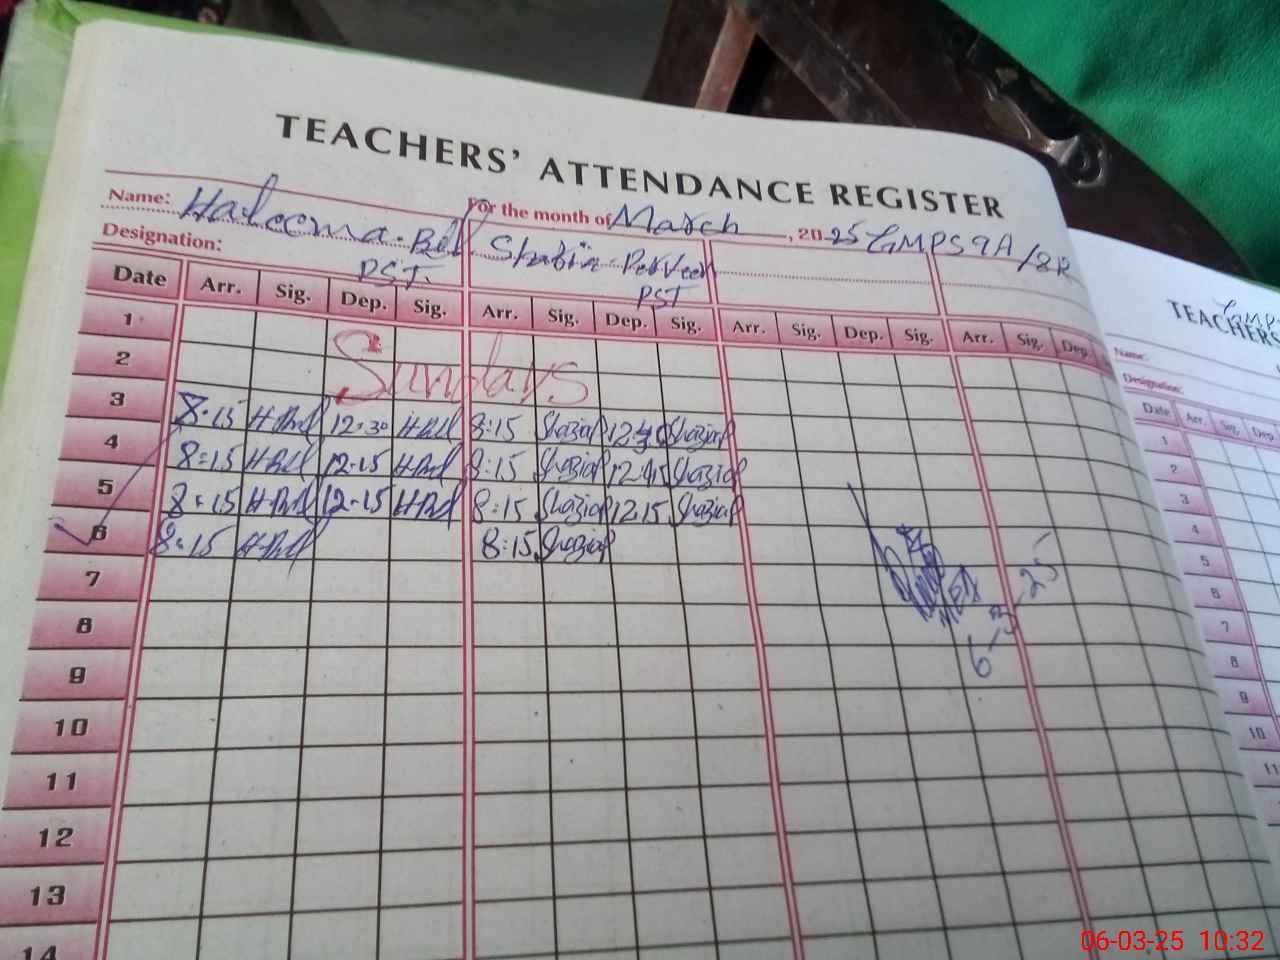 TEACHERS' ATTENDANCE REGISTER
Name: Haleema Bibi For the month of March, 2025 GMPS 9A/8R
Designation: PST Shazia Perveen PST
Date Arr. Sig. Dep. Sig. Arr. Sig. Dep. Sig. Arr. Sig. Dep. Sig. Arr. Sig. Dep.
1
2 Sundays
3 8:15 H.Bibi 12:30 H.Bibi 8:15 Shazia P 12:30 Shazia P
4 8:15 H.Bibi 12:15 H.Bibi 8:15 Shazia P 12:15 Shazia P
5 8:15 H.Bibi 12:15 H.Bibi 8:15 Shazia P 12:15 Shazia P
6 8:15 H.Bibi 8:15 Shazia P
6-3-25
7
8
9
10
11
12
13
14
TEACHERS
Name:
Designation:
Date Arr. Sig. Dep.
1
2
3
4
5
6
7
8
9
10
11
06-03-25 10:32